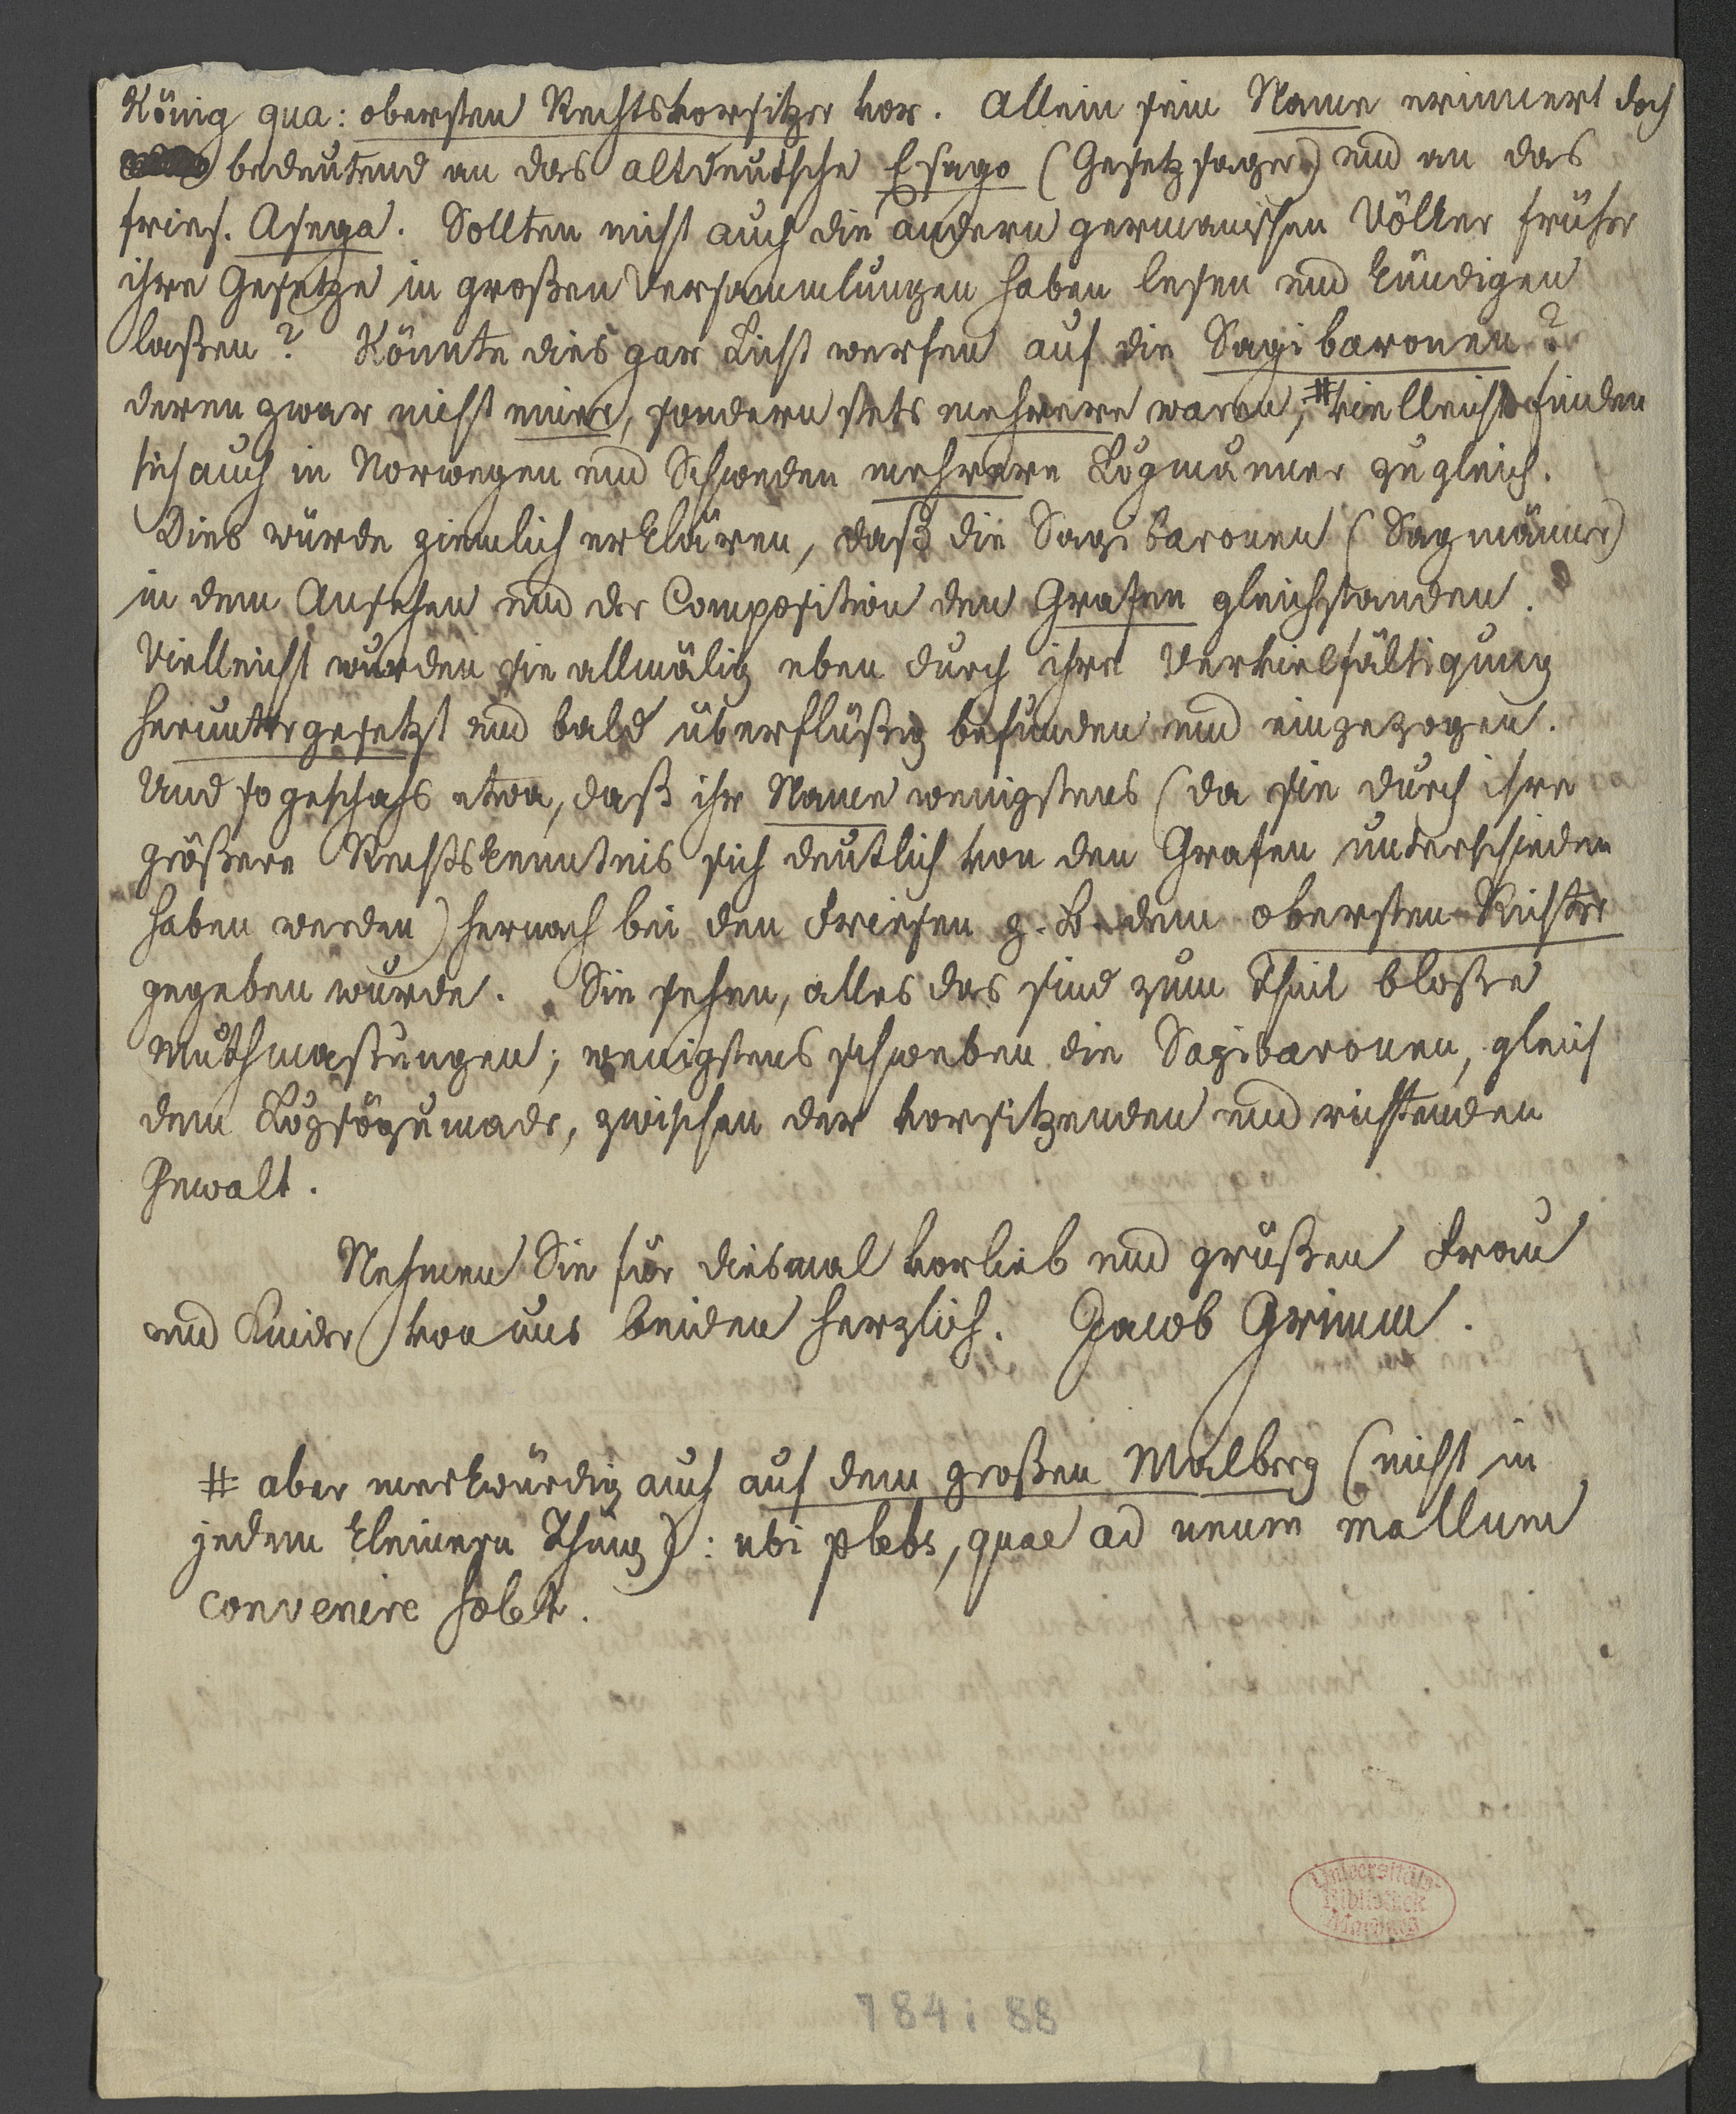 König qua: obersten Rechtsvorsitzer vor. Allein sein Name erinnert doch
bedeutend an das altdeutsche Esago (Gesetzsager) und an das
fries. Asega. Sollten nicht auch die andern germanischen Völker früher
ihre Gesetze in großen Versammlungen haben lesen und kündigen
laßen? Könnte dies gar Licht werfen auf die Sagibaronen?
deren zwar nicht einer, sondern stets mehrere waren, # vielleicht finden
sich auch in Norwegen und Schweden mehrere Lögmänner zugleich.
Dies würde ziemlich erklären, daß die Sagibaronen (Sagmänner)
in dem Ansehen und der Composition den Grafen gleichstanden.
Vielleicht wurden sie allmälig eben durch ihre Vervielfältigung
heruntergesetzt und bald überflüßig befunden und eingezogen.
Und so geschahs etwa, daß ihr Name wenigstens (da sie durch ihre
größere Rechtskenntnis sich deutlich von den Grafen unterschieden
haben werden) hernach bei den Friesen z. B. dem obersten Richter
gegeben wurde. Sie sehen, alles das sind zum Theil bloße
Muthmaßungen; wenigstens schweben die Sagibaronen, gleich
dem Lögsögumadr, zwischen der vorsitzenden und richtenden
Gewalt.
Nehmen Sie für diesmal vorlieb und grüßen Frau
und Kinder von uns beiden herzlich. Jacob Grimm.
# aber merkwürdig auch auf dem großen Malberg (nicht in
jedem kleinern Thing): ubi plebs, quae ad unum mallum
convenire solet.
Universitäts-
Bibliothek
Marburg
784: 88